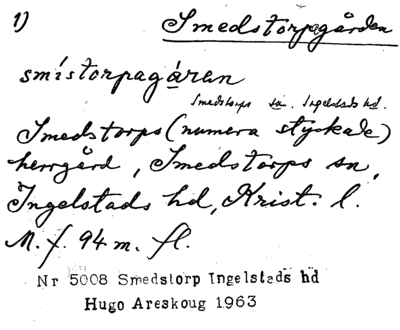 1) Smedstorpagården
smístorpagáran
Smedstorps sn. Ingelstads hd.
Smedstorps (numera styckade)
herrgård, Smedstorps sn,
Ingelstads hd, Krist. l.
M. f. 94 m. fl.
Nr 5008 Smedstorp Ingelstads hd
Hugo Areskoug 1963